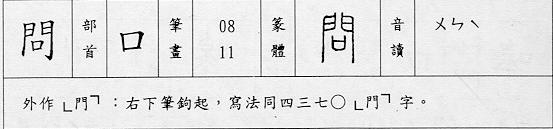 問 部首 口 筆畫 08 11 篆體 問 音讀 ㄨㄣˋ
外作「門」：右下筆鉤起，寫法同四三七〇「門」字。